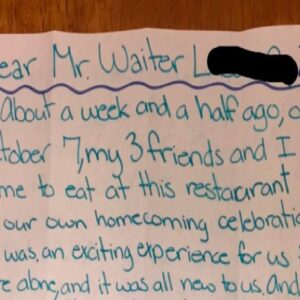 ear Mr. Waiter L
About a week and a half ago, o
tober 7, my 3 friends and I
me to eat at this restaurant
our own homecoming celebratio
was, an exciting experience for us
re alone, and it was all new to us. And